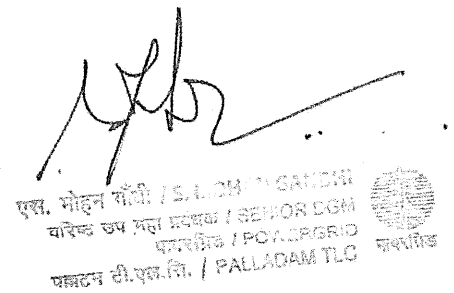 एस. मोहन गाँधी / S. MOHAN GANDHI
वरिष्ठ उप महा प्रबंधक / SENIOR DGM
पावरग्रिड / POWERGRID
पल्लडम टी.एल.सि. / PALLADAM TLC
पावरग्रिड